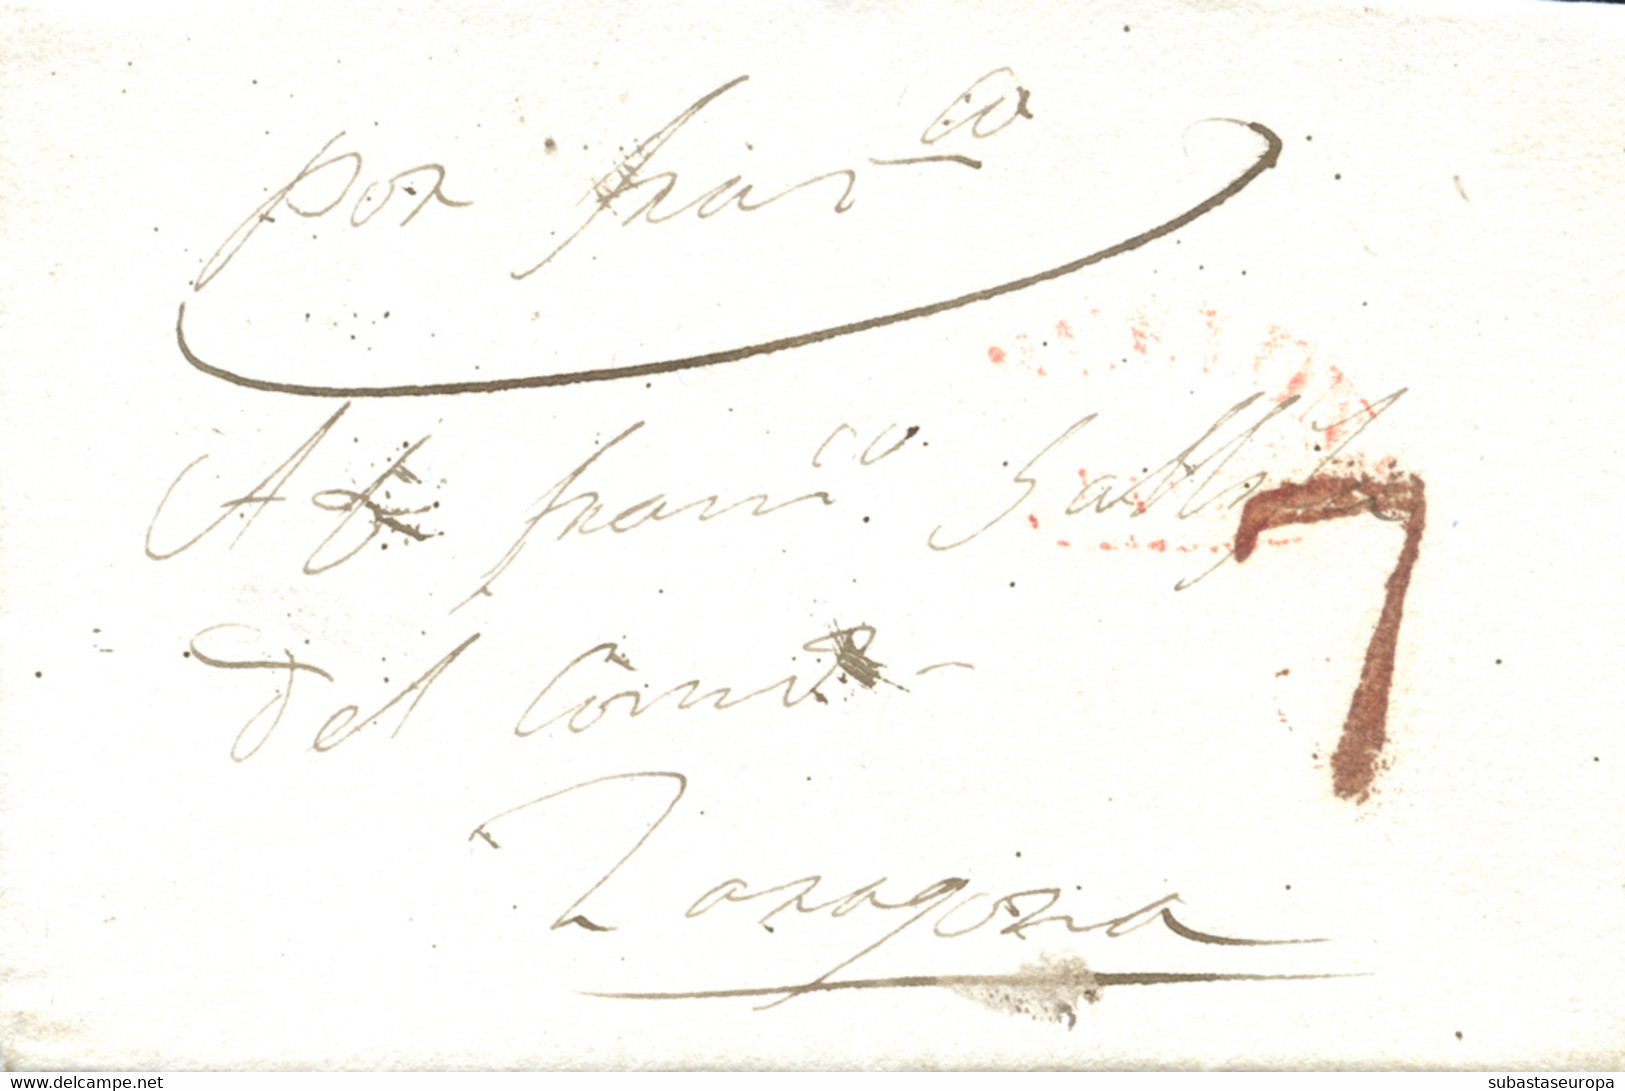 por fran^co
A D. Fran^co.
del Com^o
7
Zaragoza
www.delcampe.net
subastaseuropa